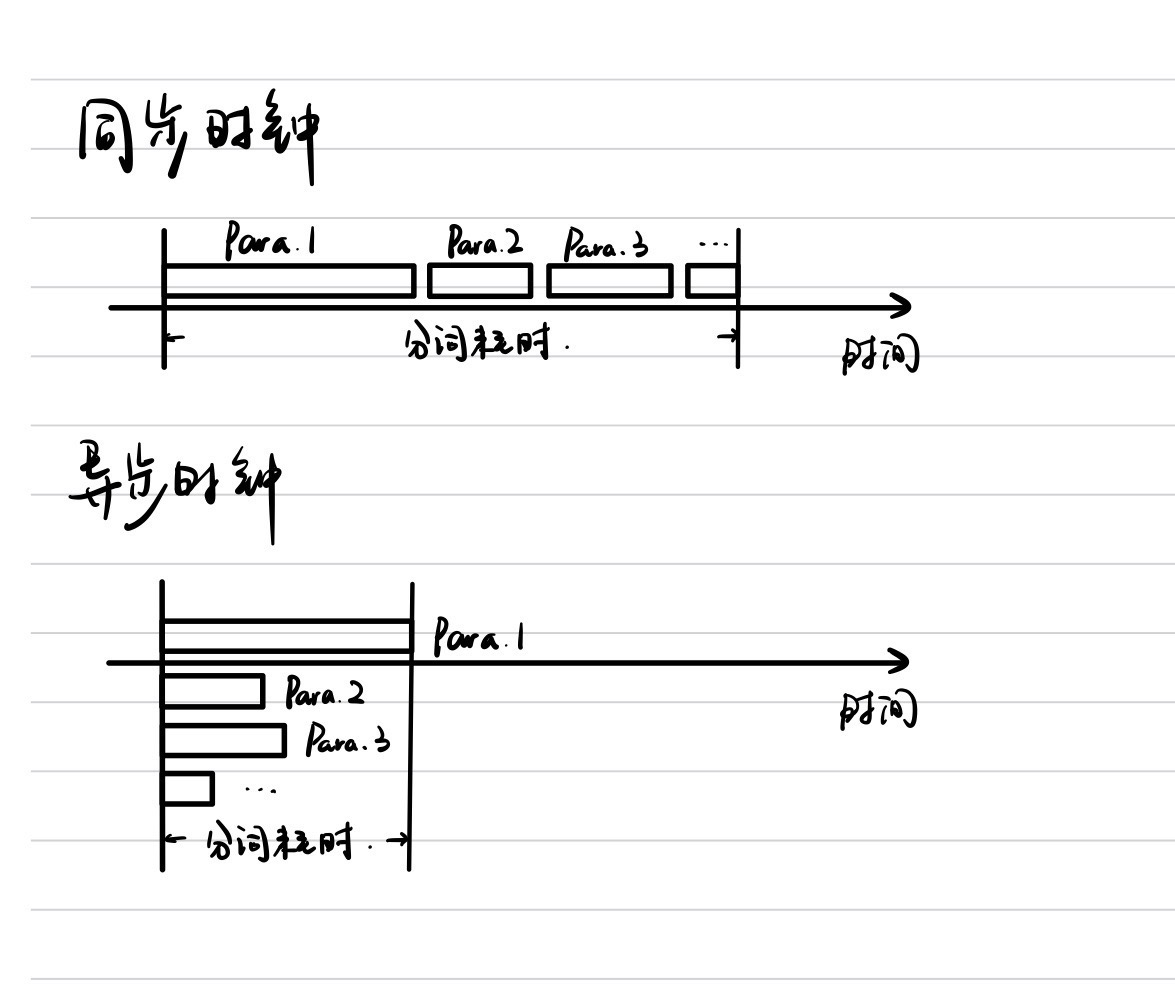 同步时钟
Para.1 Para.2 Para.3 ...
分词耗时.
时间
异步时钟
Para.1
Para.2
时间
Para.3
...
分词耗时.